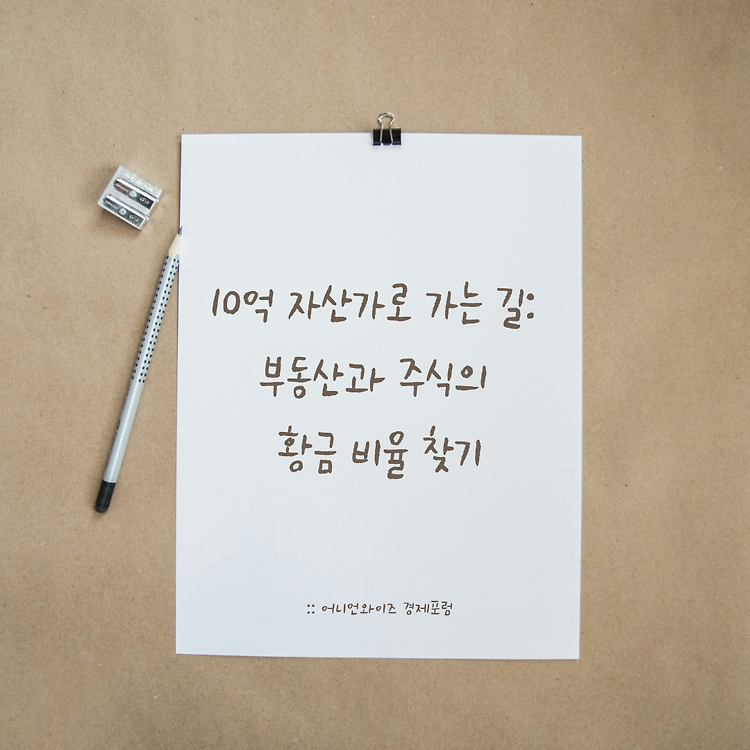 10억 자산가로 가는 길:
부동산과 주식의
황금 비율 찾기
:: 어니언와이즈 경제포럼